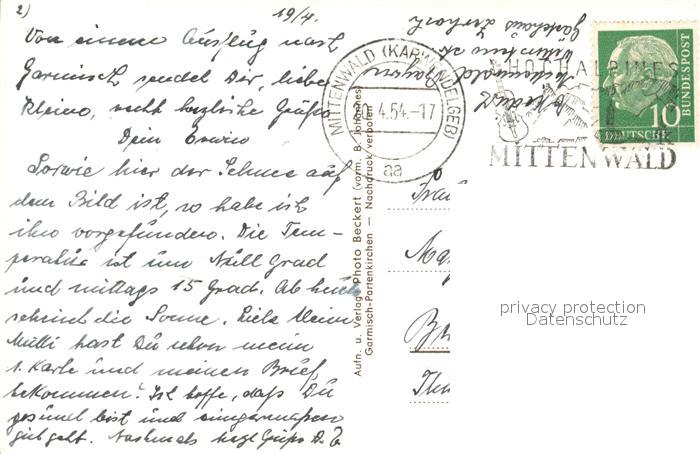 2)
19/4.
Von einem Ausflug nach
Garmisch sendet Dir, liebe
Kleine, recht herzliche Grüße
Dein Erwin
Sowie hier der Schnee auf
dem Bild ist, so habe ich
ihn vorgefunden. Die Tem-
peratur ist um Null Grad
und mittags 15 Grad. Ab heute
scheint die Sonne. Liebe kleine
Mutti hast Du schon meine
1. Karte und meinen Brief
bekommen? Ich hoffe, daß Du
gesund bist und einigermaßen
gut geht. Nochmals herzl. Grüße D. E
Aufn. u. Verlag: Photo Beckert (vorm. B. Johannes)
Garmisch-Partenkirchen — Nachdruck verboten
MITTENWALD (KARWENDELGEB)
20.4.54.-17
aa
HOCHALPINES
MITTENWALD
10
DEUTSCHE
BUNDESPOST
Absender
Mittenwald Bayern
Gästehaus
Frau
privacy protection
Datenschutz